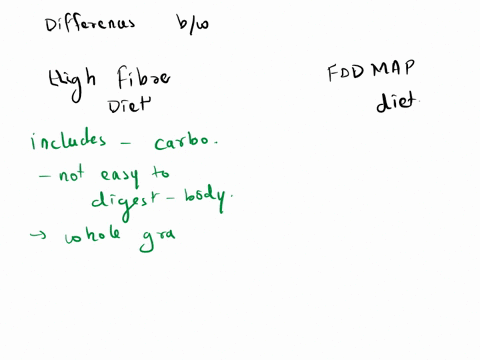 Differenus b/w
High Fibre Diet
FODMAP diet.
includes - carbo.
- not easy to
digest - body.
→ whole gra